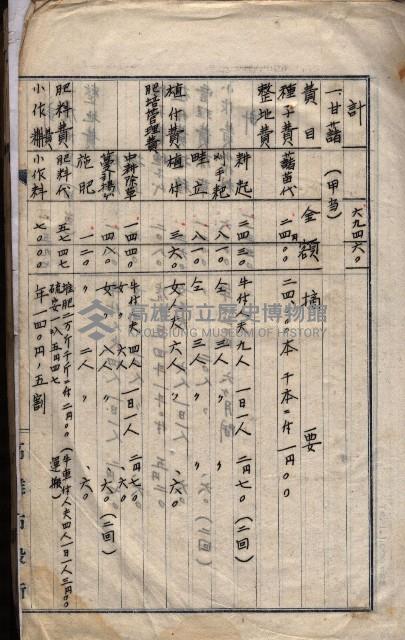 計 六九四六〇
一、甘藷(甲当)
費目 金額 摘要
種子費 藷苗代 二四〇〇 二四〇〇〇本 千本ニ付 一円〇〇
整地費 耕起 二四三〇 牛付人夫九人 一日一人 二円七〇(二回)
刈手耙 一八一〇 仝 三人 〃 〃
畦立 一八一〇 仝 三人 〃 〃
植付費 植付 三六〇 女人夫六人 〃 、六〇
肥培管理費
中耕除草 一四四〇 牛付人夫四人 一日一人 二円七〇
女〃 六人 〃 、六〇
蔓引揚 四八〇 女〃 八人 〃 、六〇(二回)
施肥 一二〇 〃 二人 〃 、六〇
肥料費 肥料代 五七四七 堆肥二万斤千斤ニ付二円〇〇(牛車付人夫四人一日一人三円〇〇運搬)
硫安 五円四七
小作費 小作料 七〇〇〇 年一四〇円ノ五割
高雄市立歷史博物館
KAOHSIUNG MUSEUM OF HISTORY
高雄市役所